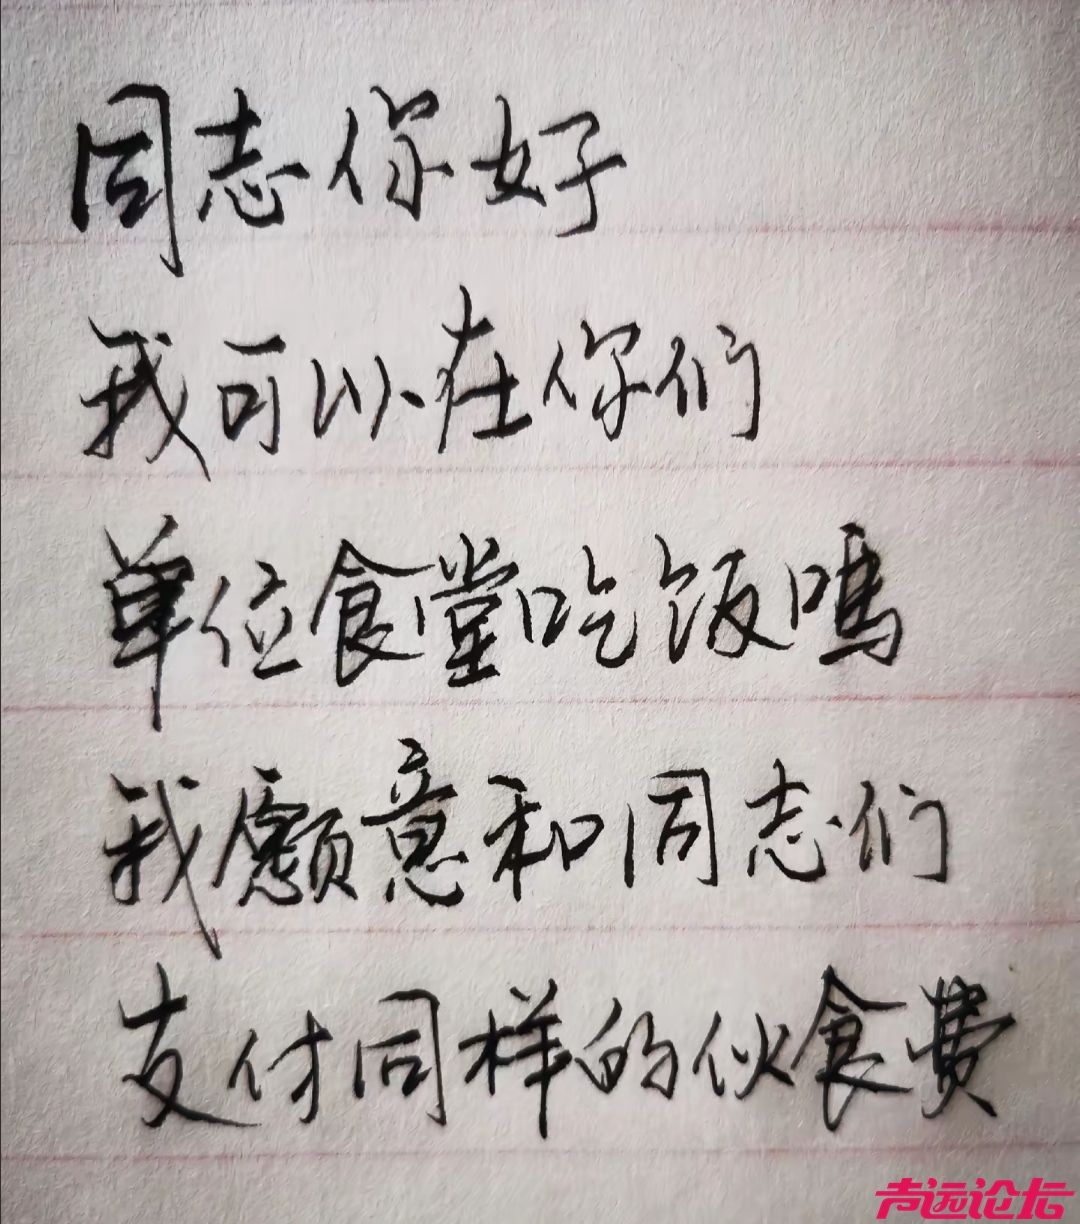 同志你好
我可以在你们
单位食堂吃饭嗎
我願意和同志们
支付同样的伙食费
声远论坛